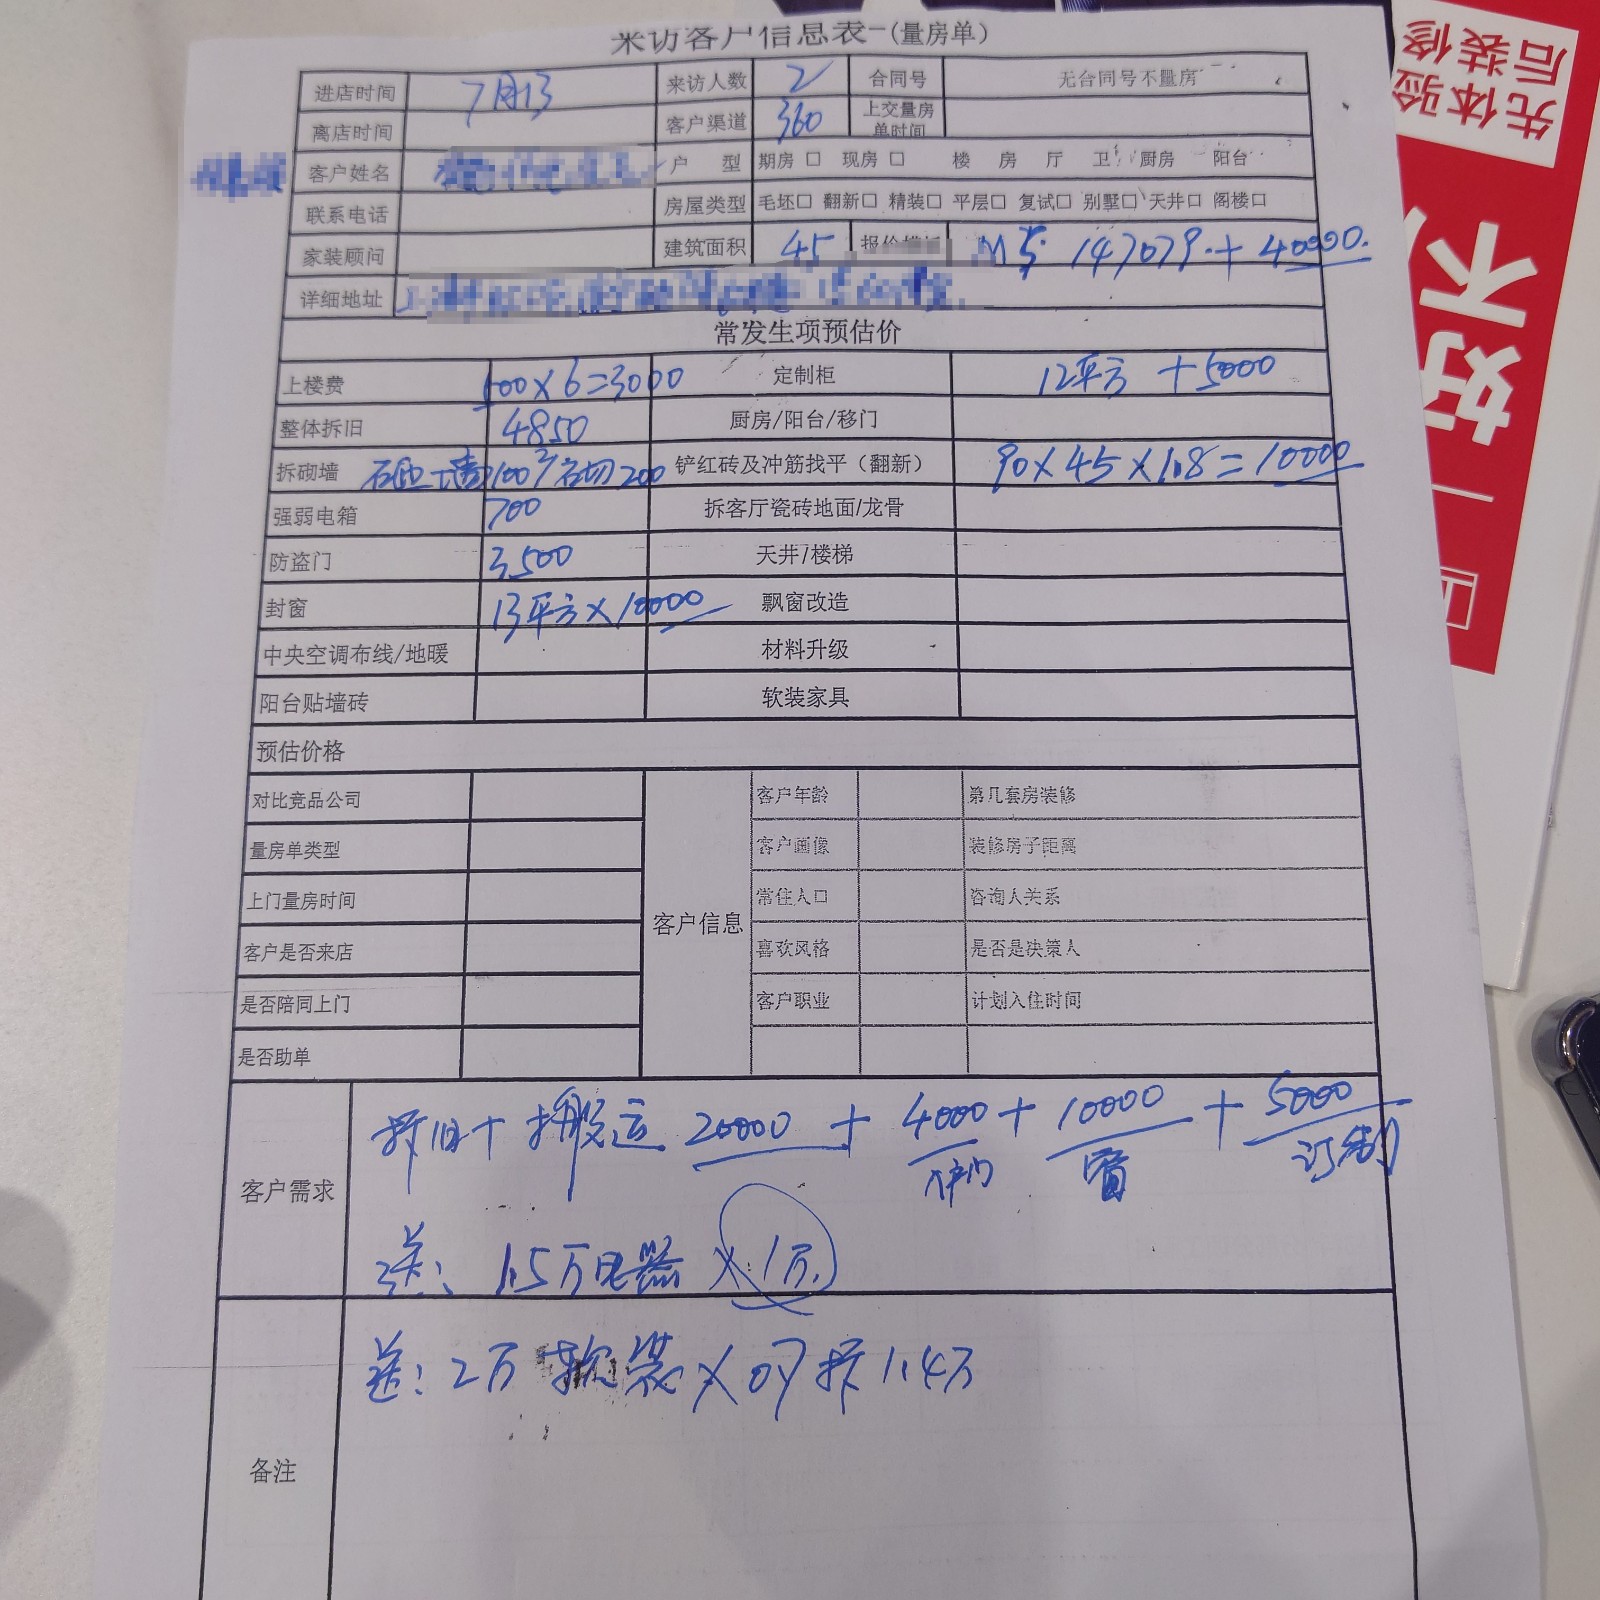 来访客户信息表-(量房单)
进店时间 7月13 来访人数 2 合同号 无合同号不量房
离店时间 客户渠道 360 上交量房单时间
客户姓名 户 型 期房 □ 现房 □ 楼 房 厅 卫 厨房 阳台
联系电话 房屋类型 毛坯□ 翻新□ 精装□ 平层□ 复试□ 别墅□ 天井□ 阁楼□
家装顾问 建筑面积 45 147079.+40000.
详细地址
常发生项预估价
上楼费 500×6=3000 定制柜 12平方 +5000
整体拆旧 4850 厨房/阳台/移门
拆砌墙 200 铲红砖及冲筋找平（翻新） 90×45×1.8=10000
强弱电箱 700 拆客厅瓷砖地面/龙骨
防盗门 3500 天井/楼梯
封窗 13平方×10000 飘窗改造
中央空调布线/地暖 材料升级
阳台贴墙砖 软装家具
预估价格
对比竞品公司 客户年龄 第几套房装修
量房单类型 客户画像 装修房子距离
上门量房时间 客户信息 常住人口 咨询人关系
客户是否来店 喜欢风格 是否是决策人
是否陪同上门 客户职业 计划入住时间
是否助单
客户需求 拆旧+搬运 20000 + 4000 + 10000 + 5000
窗 订制
送: 1.5万电器 × 1万.
备注 送: 2万 软装 × 可抵1.4万
先体验
后装修
好不